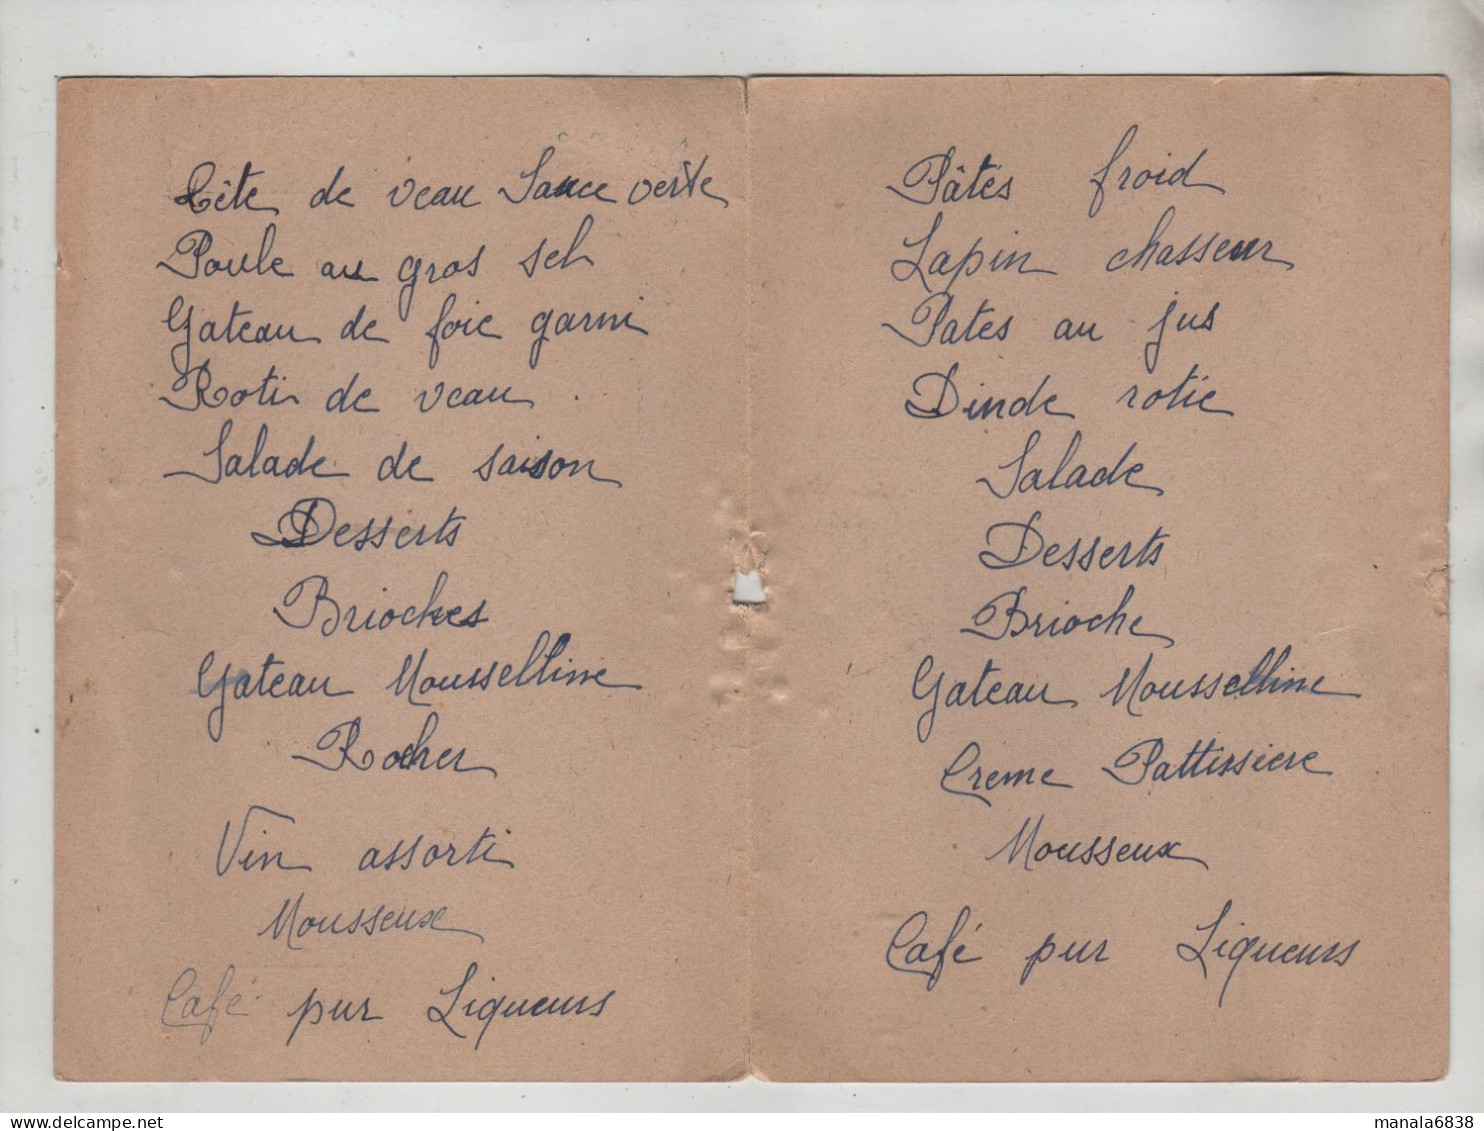 Tête de veau Sauce verte
Poule au gros sel
Gateau de foie garni
Roti de veau
Salade de saison
Desserts
Brioches
Gateau Mousselline
Rocher
Vin assorti
Mousseux
Café pur Liqueurs
Pâtés froid
Lapin chasseur
Pates au jus
Dinde rotie
Salade
Desserts
Brioche
Gateau Mousselline
Creme Pattissiere
Mousseux
Café pur Liqueurs
manala6838